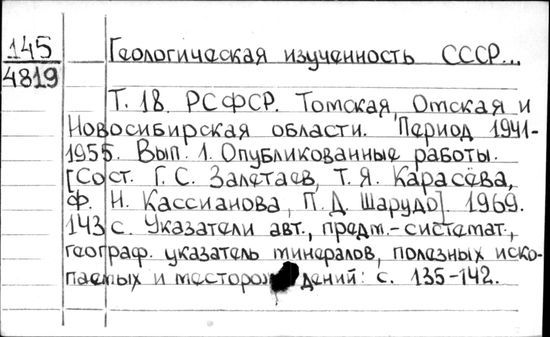 145
4819
Геологическая изученность СССР...
Т. 18. РСФСР. Томская, Омская и
Новосибирская области. Период 1941-
1955. Вып. 1. Опубликованные работы.
[Сост. Г. С. Залетаев, Т. Я. Карасёва,
Ф. Н. Кассианова, П. Д. Шарудо]. 1969.
143 с. Указатели авт., предм.-системат.,
географ. указатель минералов, полезных иско-
паемых и месторождений: с. 135-142.